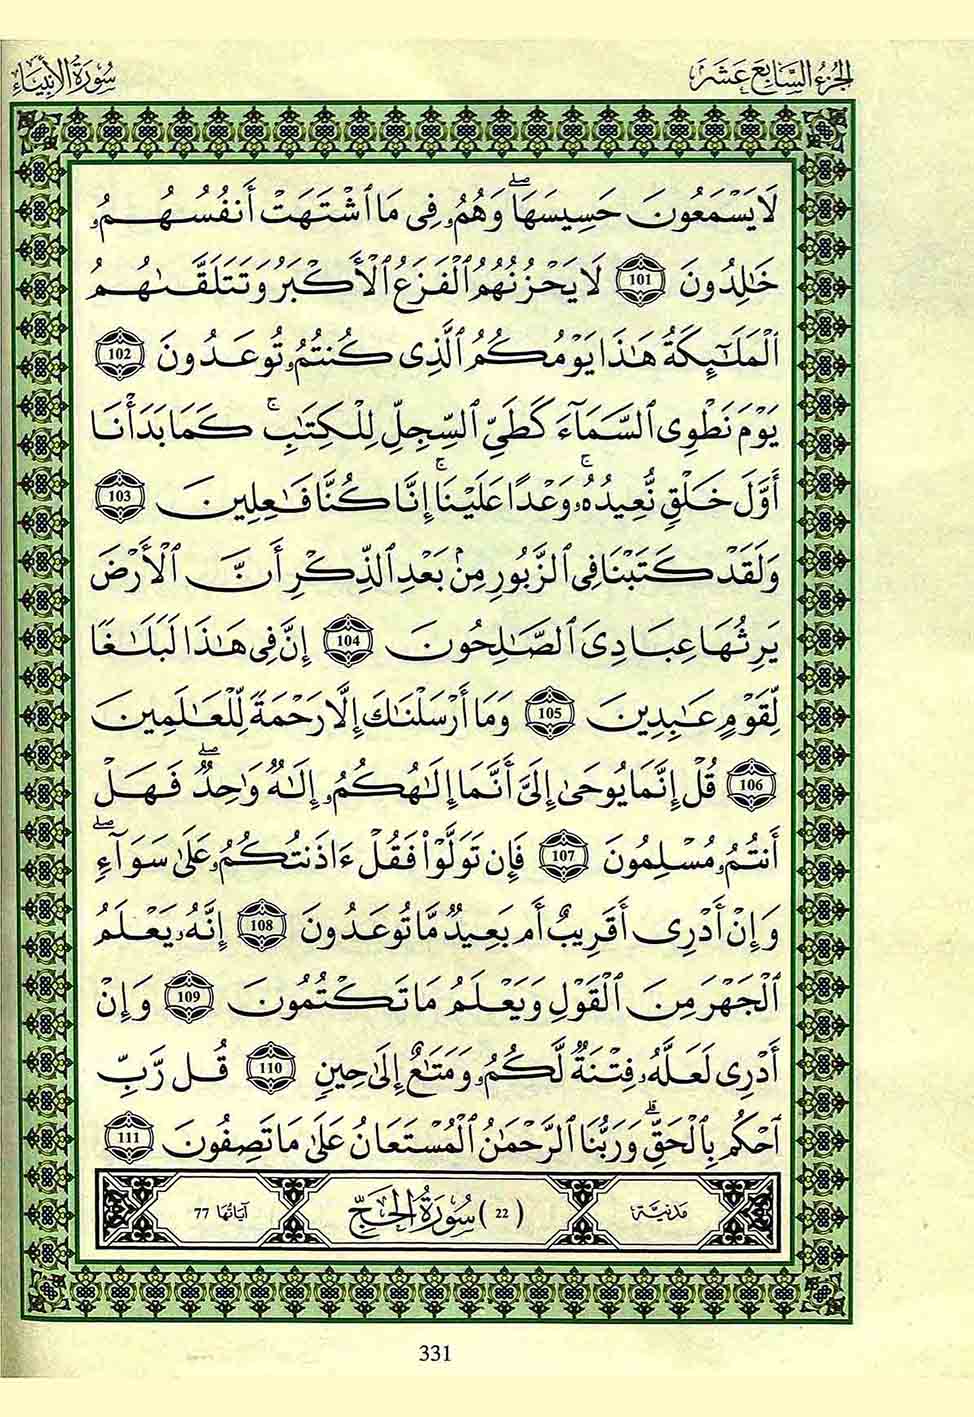 الجزء السابع عشر
سورة الأنبياء
لَا يَسْمَعُونَ حَسِيسَهَاۖ وَهُمُۥ فِى مَا ٱشْتَهَتْ أَنفُسُهُمُۥ
خَٰلِدُونَ 101 لَا يَحْزُنُهُمُ ٱلْفَزَعُ ٱلْأَكْبَرُ وَتَتَلَقَّىٰهُمُ
ٱلْمَلَٰٓئِكَةُ هَٰذَا يَوْمُكُمُ ٱلَّذِى كُنتُمُۥ تُوعَدُونَ 102
يَوْمَ نَطْوِى ٱلسَّمَآءَ كَطَىِّ ٱلسِّجِلِّ لِلْكِتَٰبِۚ كَمَا بَدَأْنَا
أَوَّلَ خَلْقٍ نُّعِيدُهُۥۚ وَعْدًا عَلَيْنَاۚ إِنَّا كُنَّا فَٰعِلِينَ 103
وَلَقَدْ كَتَبْنَا فِى ٱلزَّبُورِ مِنۢ بَعْدِ ٱلذِّكْرِ أَنَّ ٱلْأَرْضَ
يَرِثُهَا عِبَادِىَ ٱلصَّٰلِحُونَ 104 إِنَّ فِى هَٰذَا لَبَلَٰغًا
لِّقَوْمٍ عَٰبِدِينَ 105 وَمَا أَرْسَلْنَٰكَ إِلَّا رَحْمَةً لِّلْعَٰلَمِينَ
106 قُلْ إِنَّمَا يُوحَىٰ إِلَىَّ أَنَّمَا إِلَٰهُكُمُۥ إِلَٰهٌ وَٰحِدٌۖ فَهَلْ
أَنتُمُۥ مُسْلِمُونَ 107 فَإِن تَوَلَّوْا۟ فَقُلْ ءَاذَنتُكُمُۥ عَلَىٰ سَوَآءٍۖ
وَإِنْ أَدْرِى أَقَرِيبٌ أَم بَعِيدٌ مَّا تُوعَدُونَ 108 إِنَّهُۥ يَعْلَمُ
ٱلْجَهْرَ مِنَ ٱلْقَوْلِ وَيَعْلَمُ مَا تَكْتُمُونَ 109 وَإِنْ
أَدْرِى لَعَلَّهُۥ فِتْنَةٌ لَّكُمُۥ وَمَتَٰعٌ إِلَىٰ حِينٍ 110 قُل رَّبِّ
ٱحْكُم بِٱلْحَقِّۗ وَرَبُّنَا ٱلرَّحْمَٰنُ ٱلْمُسْتَعَانُ عَلَىٰ مَا تَصِفُونَ 111
مدنية (22) سُورَةُ الحَجِّ آياتُها 77
331